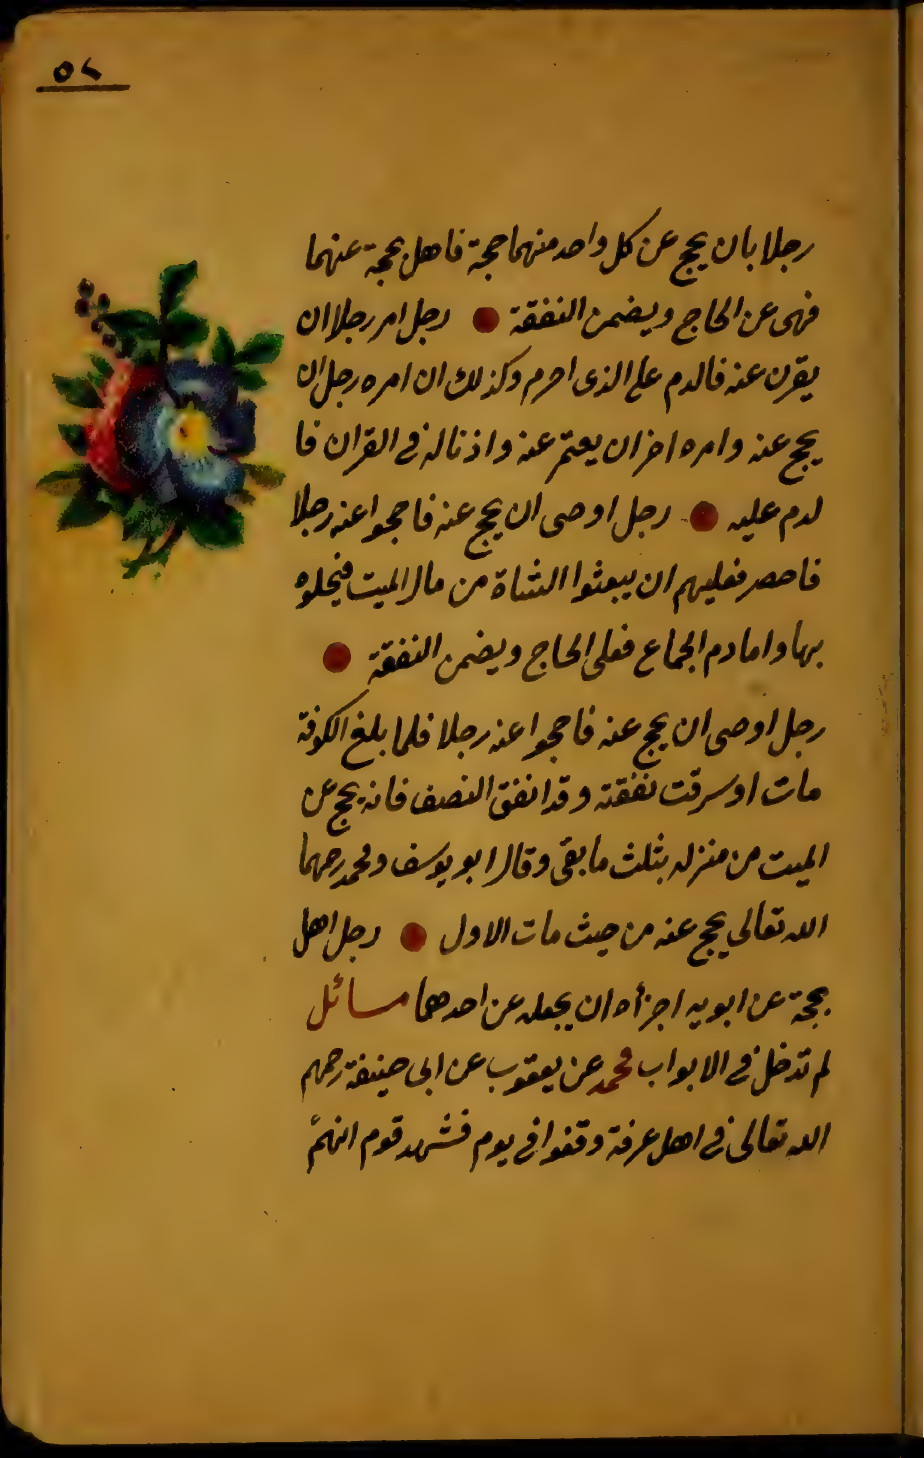 ٥٢
رجلا بان يحج عن كل واحد منهما حجة فاهل بحجة عنهما
فهى عن الحاج ويضمن النفقة رجل امر رجلا ان
يقرن عنه فالدم على الذى احرم وكذلك ان امره رجل ان
يحج عنه وامره اخر ان يعتمر عنه واذنا له فى القران فا
لدم عليه رجل اوصى ان يحج عنه فاحجوا عنه رجلا
فاحصر فعليهم ان يبعثوا الشاة من مال الميت فيحلوه
بها واما دم الجماع فعلى الحاج ويضمن النفقة
رجل اوصى ان يحج عنه فاحجوا عنه رجلا فلما بلغ الكوفة
مات او سرقت نفقته وقد انفق النصف فانه يحج عن
الميت من منزله بثلث ما بقى وقال ابو يوسف ومحمد رحمهما
الله تعالى يحج عنه من حيث مات الاول رجل اهل
بحجة عن ابويه اجزأه ان يجعله عن احدهما مسائل
لم تدخل فى الابواب محمد عن يعقوب عن ابى حنيفة رحمهم
الله تعالى فى اهل عرفة وقفوا فى يوم فشهد قوم انهم